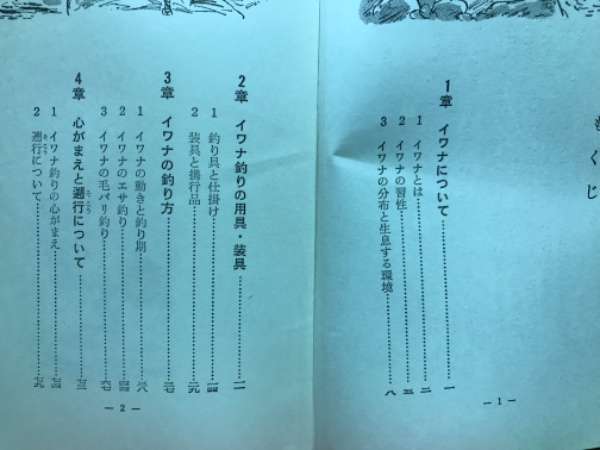 もくじ
1章 イワナについて……一
1 イワナとは……二
2 イワナの習性……五
3 イワナの分布と生息する環境……八
— 1 —
2章 イワナ釣りの用具・装具……一一
1 釣り具と仕掛け……一四
2 装具と携行品……一九
3章 イワナの釣り方……三七
1 イワナの動きと釣り期……三八
2 イワナのエサ釣り……四四
3 イワナの毛バリ釣り……六七
4章 心がまえと遡行について……七三
1 イワナ釣りの心がまえ……七四
2 遡行について……七九
— 2 —